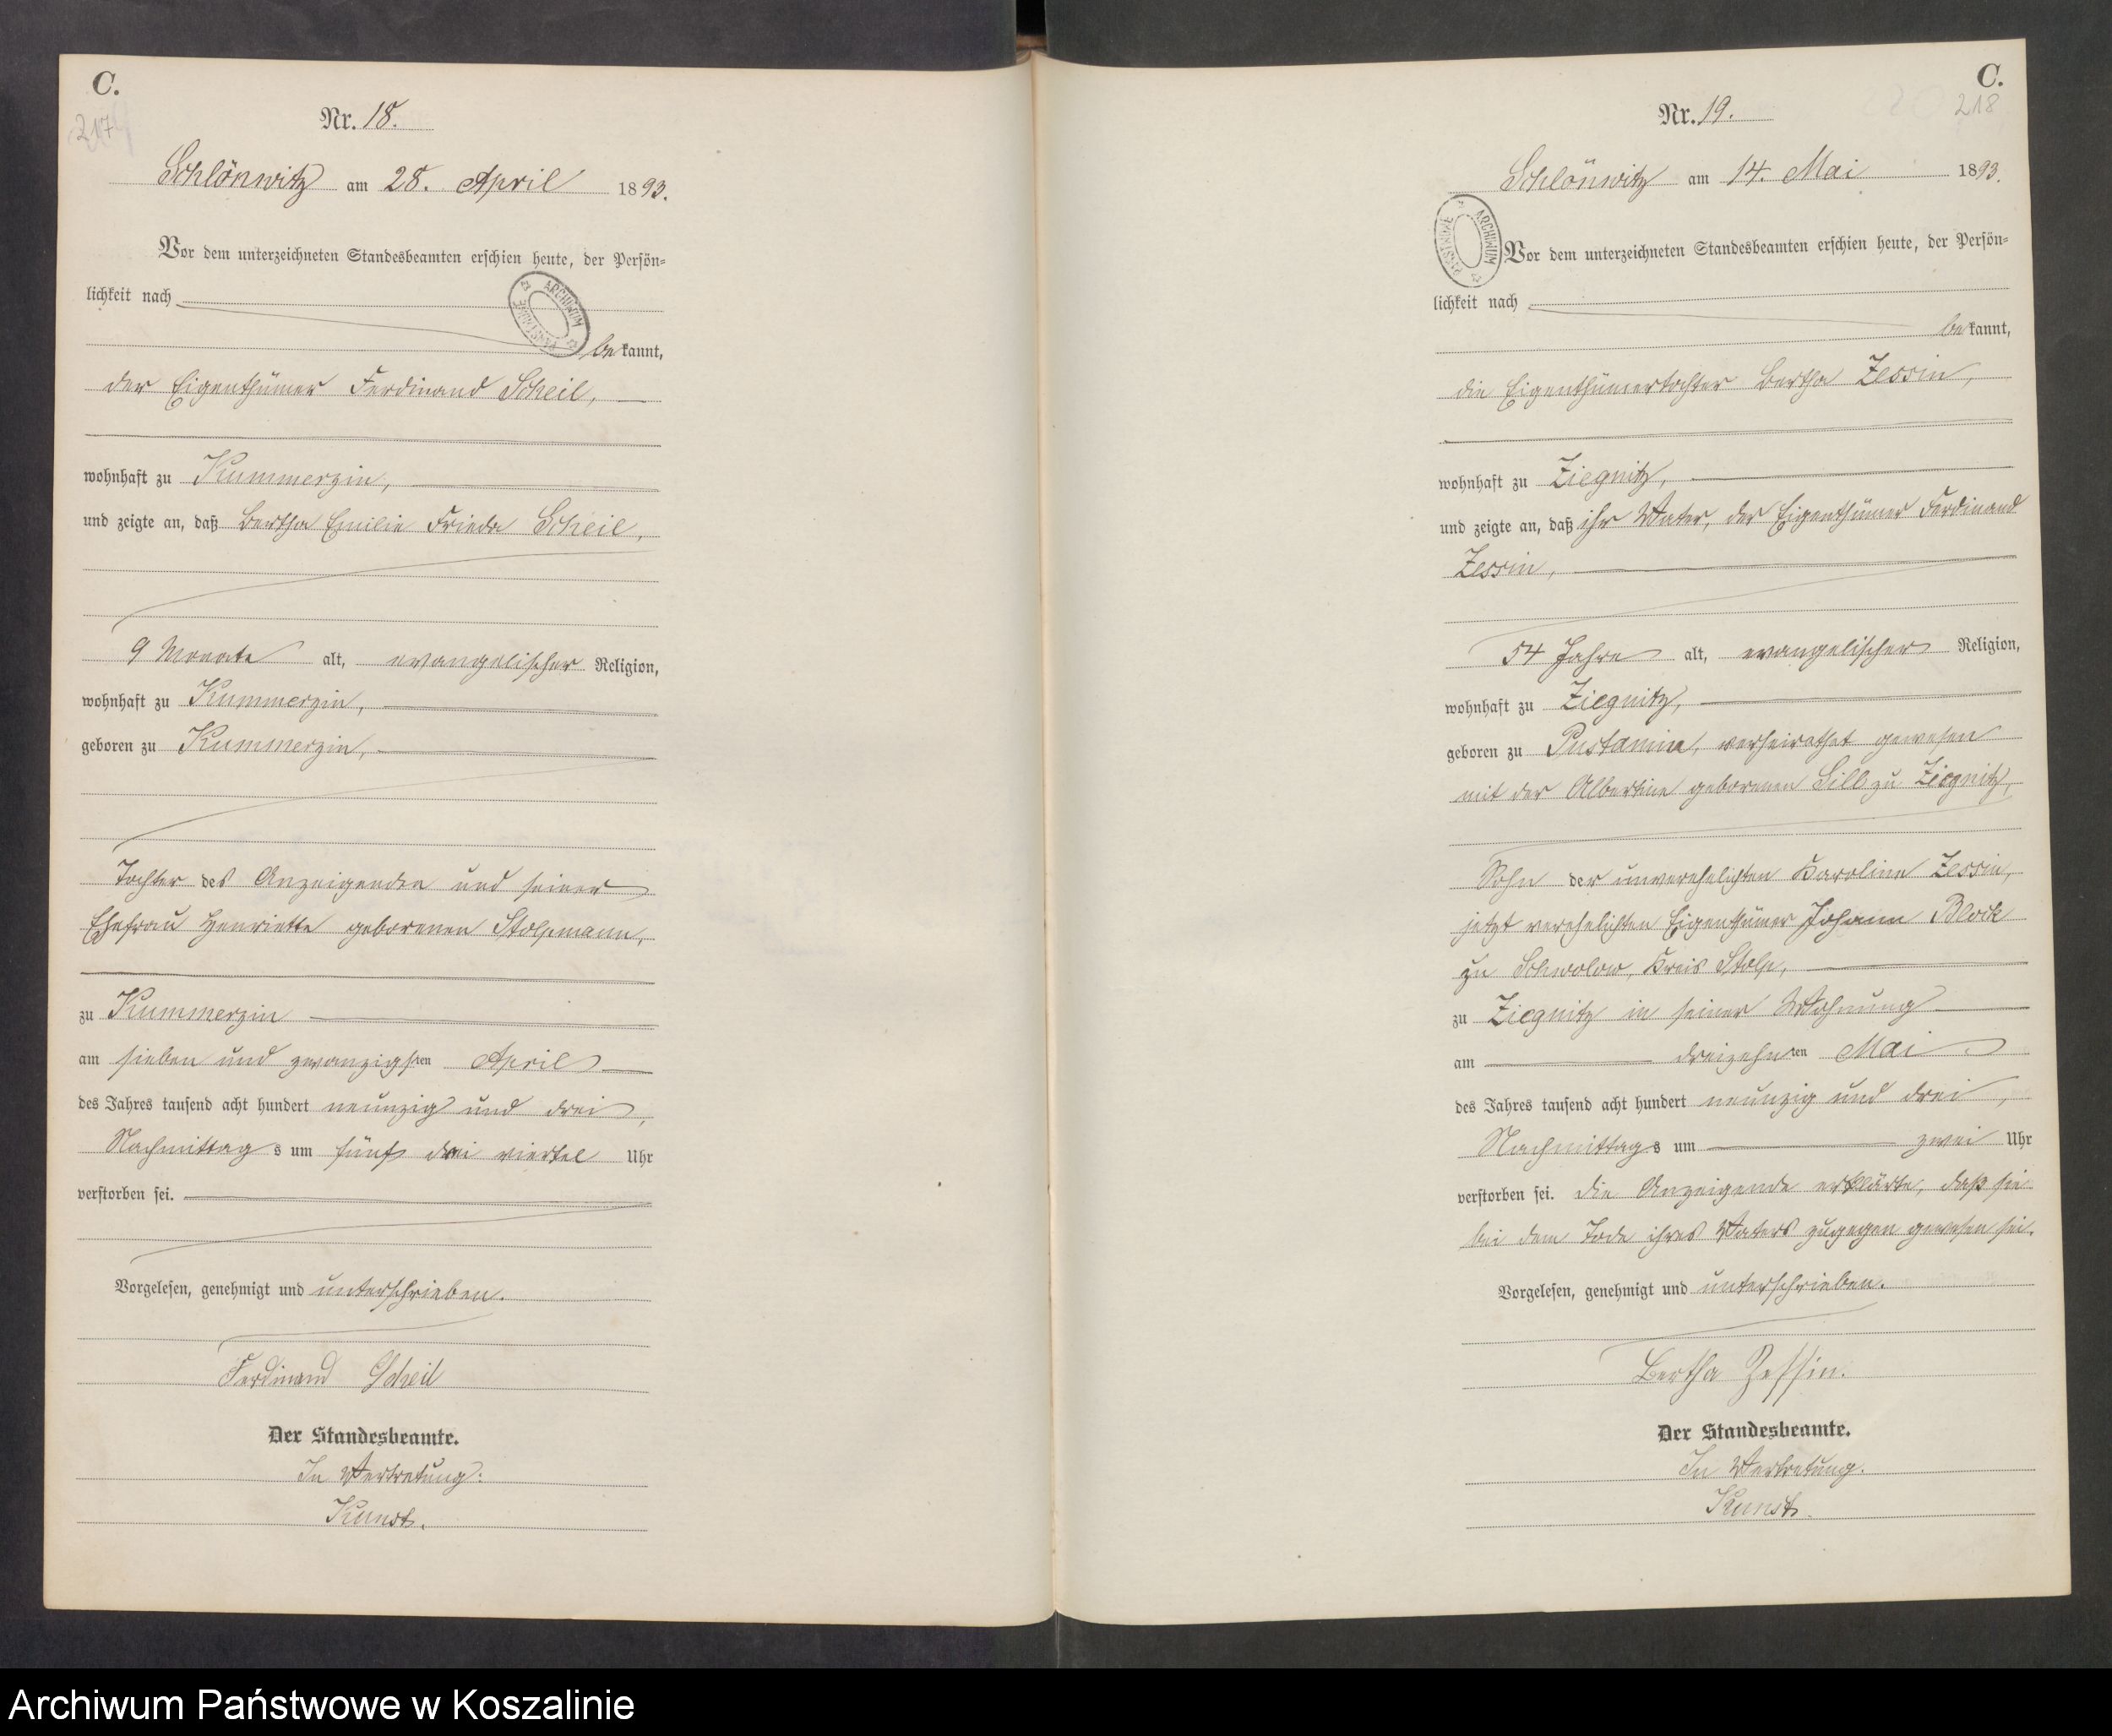 C.
217
Nr. 18.
Schlönwitz am 28. April 1893.
Vor dem unterzeichneten Standesbeamten erschien heute, der Persön-
lichkeit nach
ARCHIWUM PAŃSTWOWE
bekannt,
der Eigenthümer Ferdinand Scheil,
wohnhaft zu Kummerzin,
und zeigte an, daß Bertha Emilie Frieda Scheil,
9 Monate alt, evangelischer Religion,
wohnhaft zu Kummerzin,
geboren zu Kummerzin,
Tochter des Anzeigenden und seiner
Ehefrau Henriette geborenen Stolpmann,
zu Kummerzin
am sieben und zwanzigsten April
des Jahres tausend acht hundert neunzig und drei,
Nachmittags um fünf drei viertel Uhr
verstorben sei.
Vorgelesen, genehmigt und unterschrieben.
Ferdinand Scheil
Der Standesbeamte.
In Vertretung:
Kunst.
C.
218
Nr. 19.
Schlönwitz am 14. Mai 1893.
ARCHIWUM PAŃSTWOWE
Vor dem unterzeichneten Standesbeamten erschien heute, der Persön-
lichkeit nach
bekannt,
die Eigenthümertochter Bertha Zessin,
wohnhaft zu Ziegnitz,
und zeigte an, daß ihr Vater, der Eigenthümer Ferdinand
Zessin,
54 Jahre alt, evangelischer Religion,
wohnhaft zu Ziegnitz,
geboren zu Pustamin, verheirathet gewesen
mit der Albertine geborenen Sill zu Ziegnitz,
Sohn der unverehelichten Karoline Zessin,
jetzt verehelichten Eigenthümer Johann Block
zu Schwolow, Kreis Stolp,
zu Ziegnitz in seiner Wohnung
am dreizehnten Mai
des Jahres tausend acht hundert neunzig und drei,
Nachmittags um zwei Uhr
verstorben sei. Die Anzeigende erklärte, daß sie
bei dem Tode ihres Vaters zugegen gewesen sei.
Vorgelesen, genehmigt und unterschrieben.
Bertha Zessin.
Der Standesbeamte.
In Vertretung.
Kunst.
Archiwum Państwowe w Koszalinie